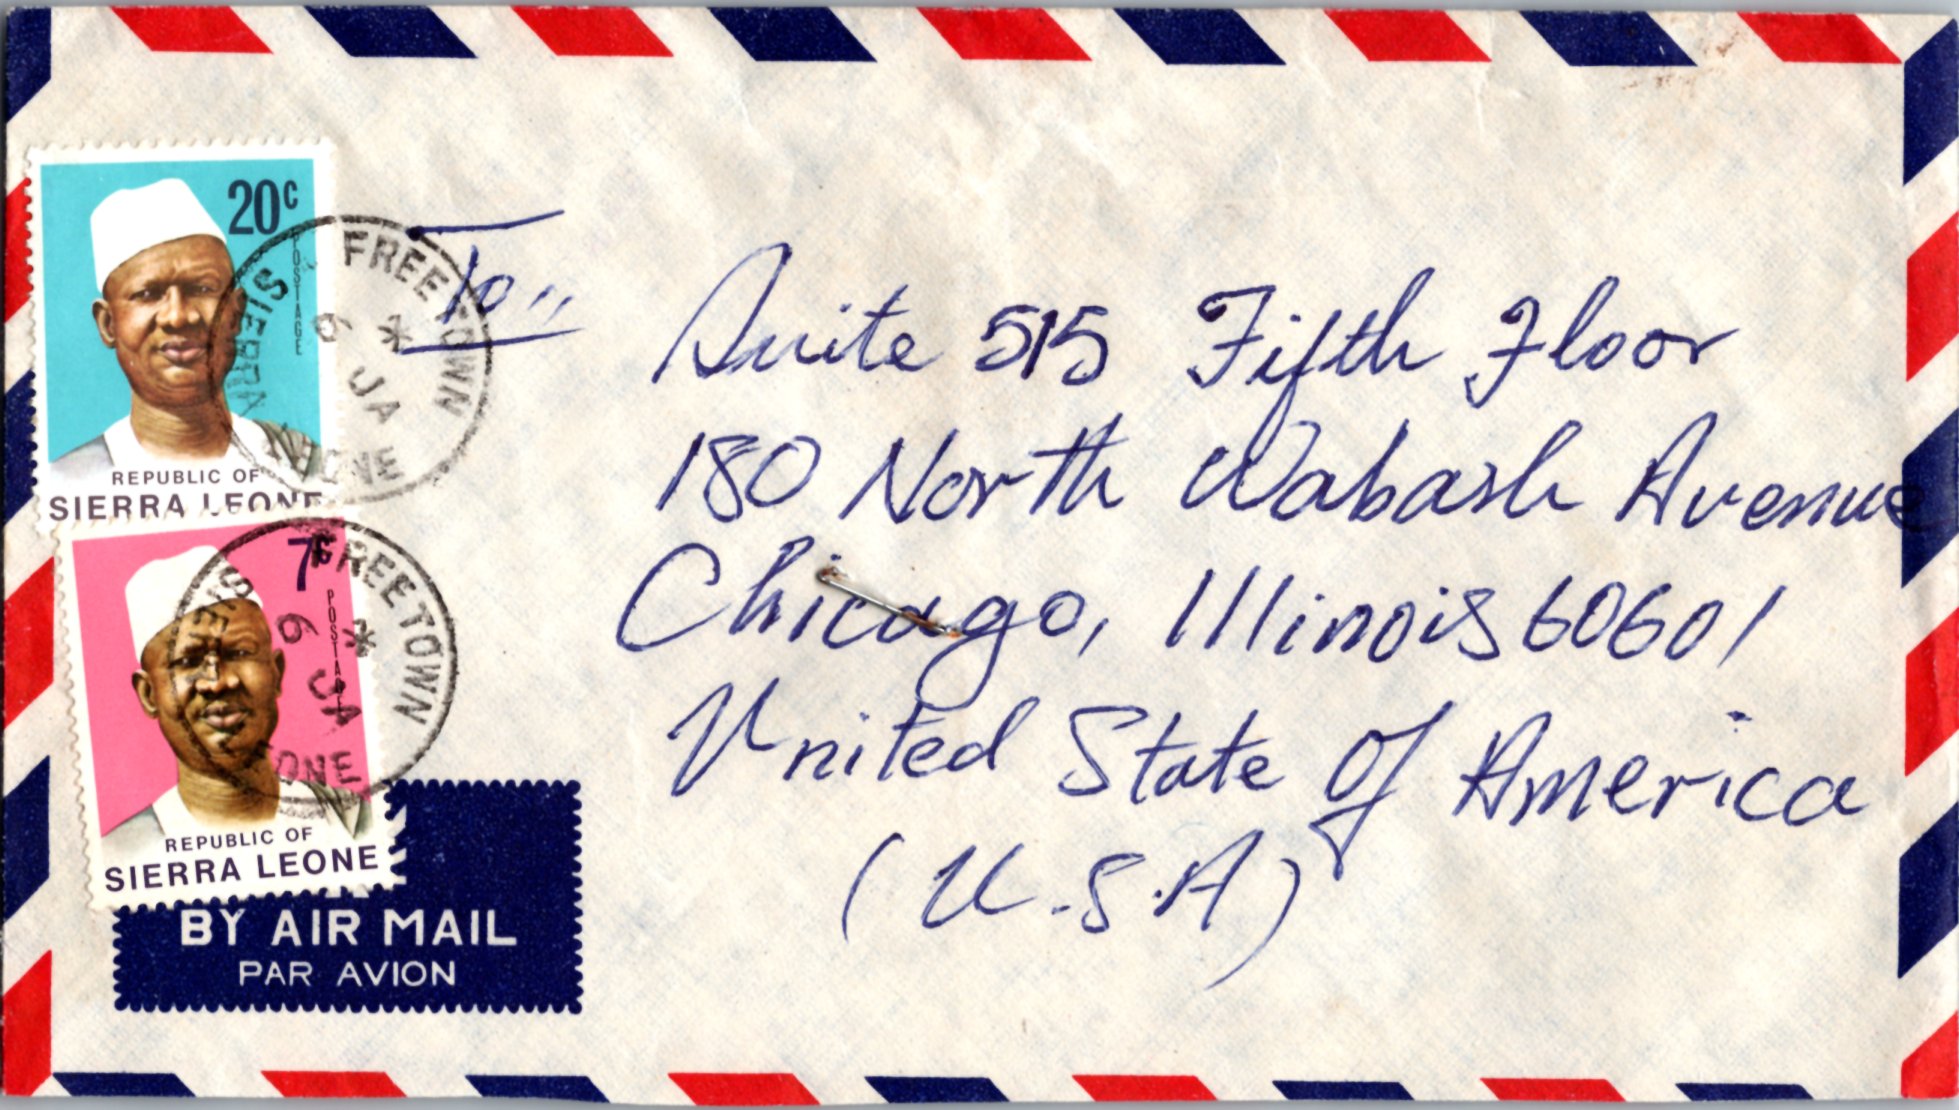 20c
POSTAGE
REPUBLIC OF
SIERRA LEONE
FREETOWN
6 JA
SIERRA LEONE
7c
POSTAGE
REPUBLIC OF
SIERRA LEONE
FREETOWN
6 JA
SIE
ONE
BY AIR MAIL
PAR AVION
To,,
Suite 515 Fifth Floor
180 North Wabash Avenue
Chicago, Illinois 60601
United State Of America
(U.S.A)